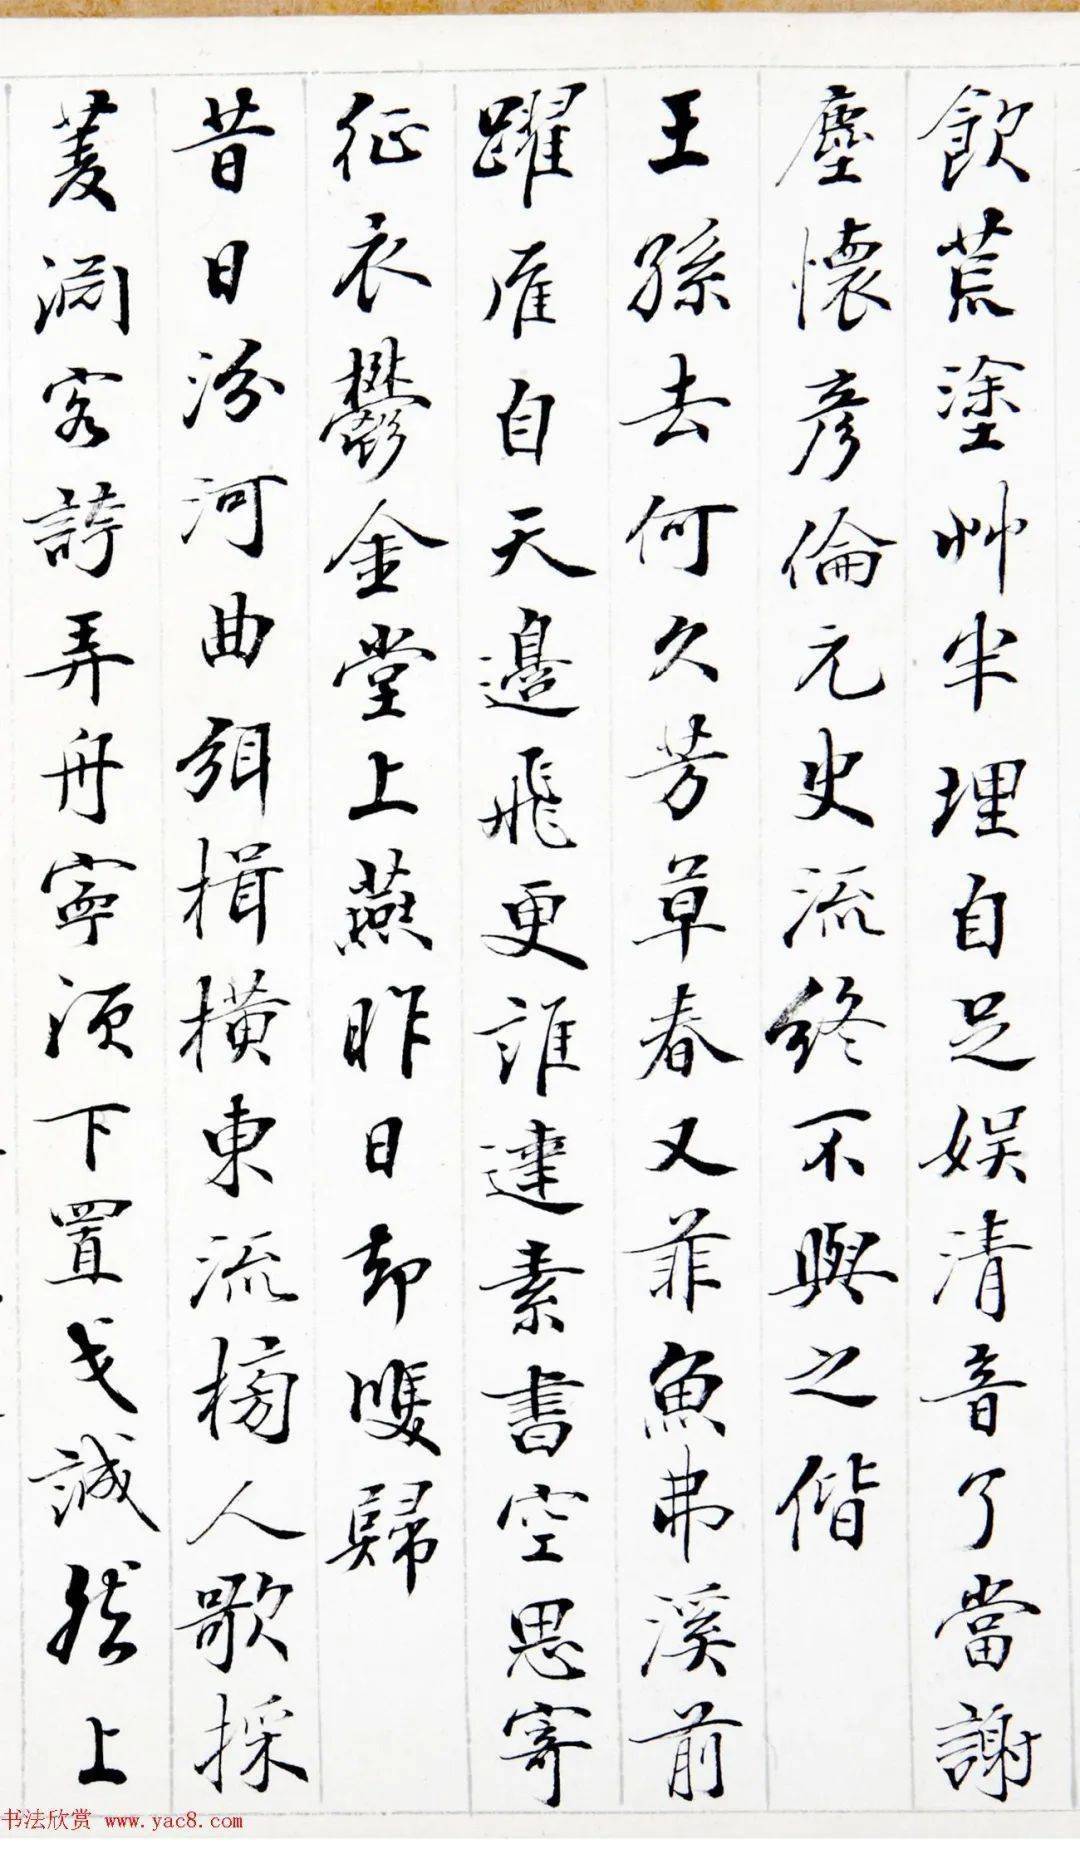 飲荒塗艸半埋自足娛清音了當謝
塵懷彥倫元史流終不與之偕
王孫去何久芳草春又菲魚弗溪前
躍雁自天邊飛更誰達素書空思寄
征衣鬱金堂上燕昨日却雙歸
昔日汾河曲弭楫橫東流榜人歌採
菱渊客誇弄舟寧須下置戈誠然上
书法欣赏 www.yac8.com